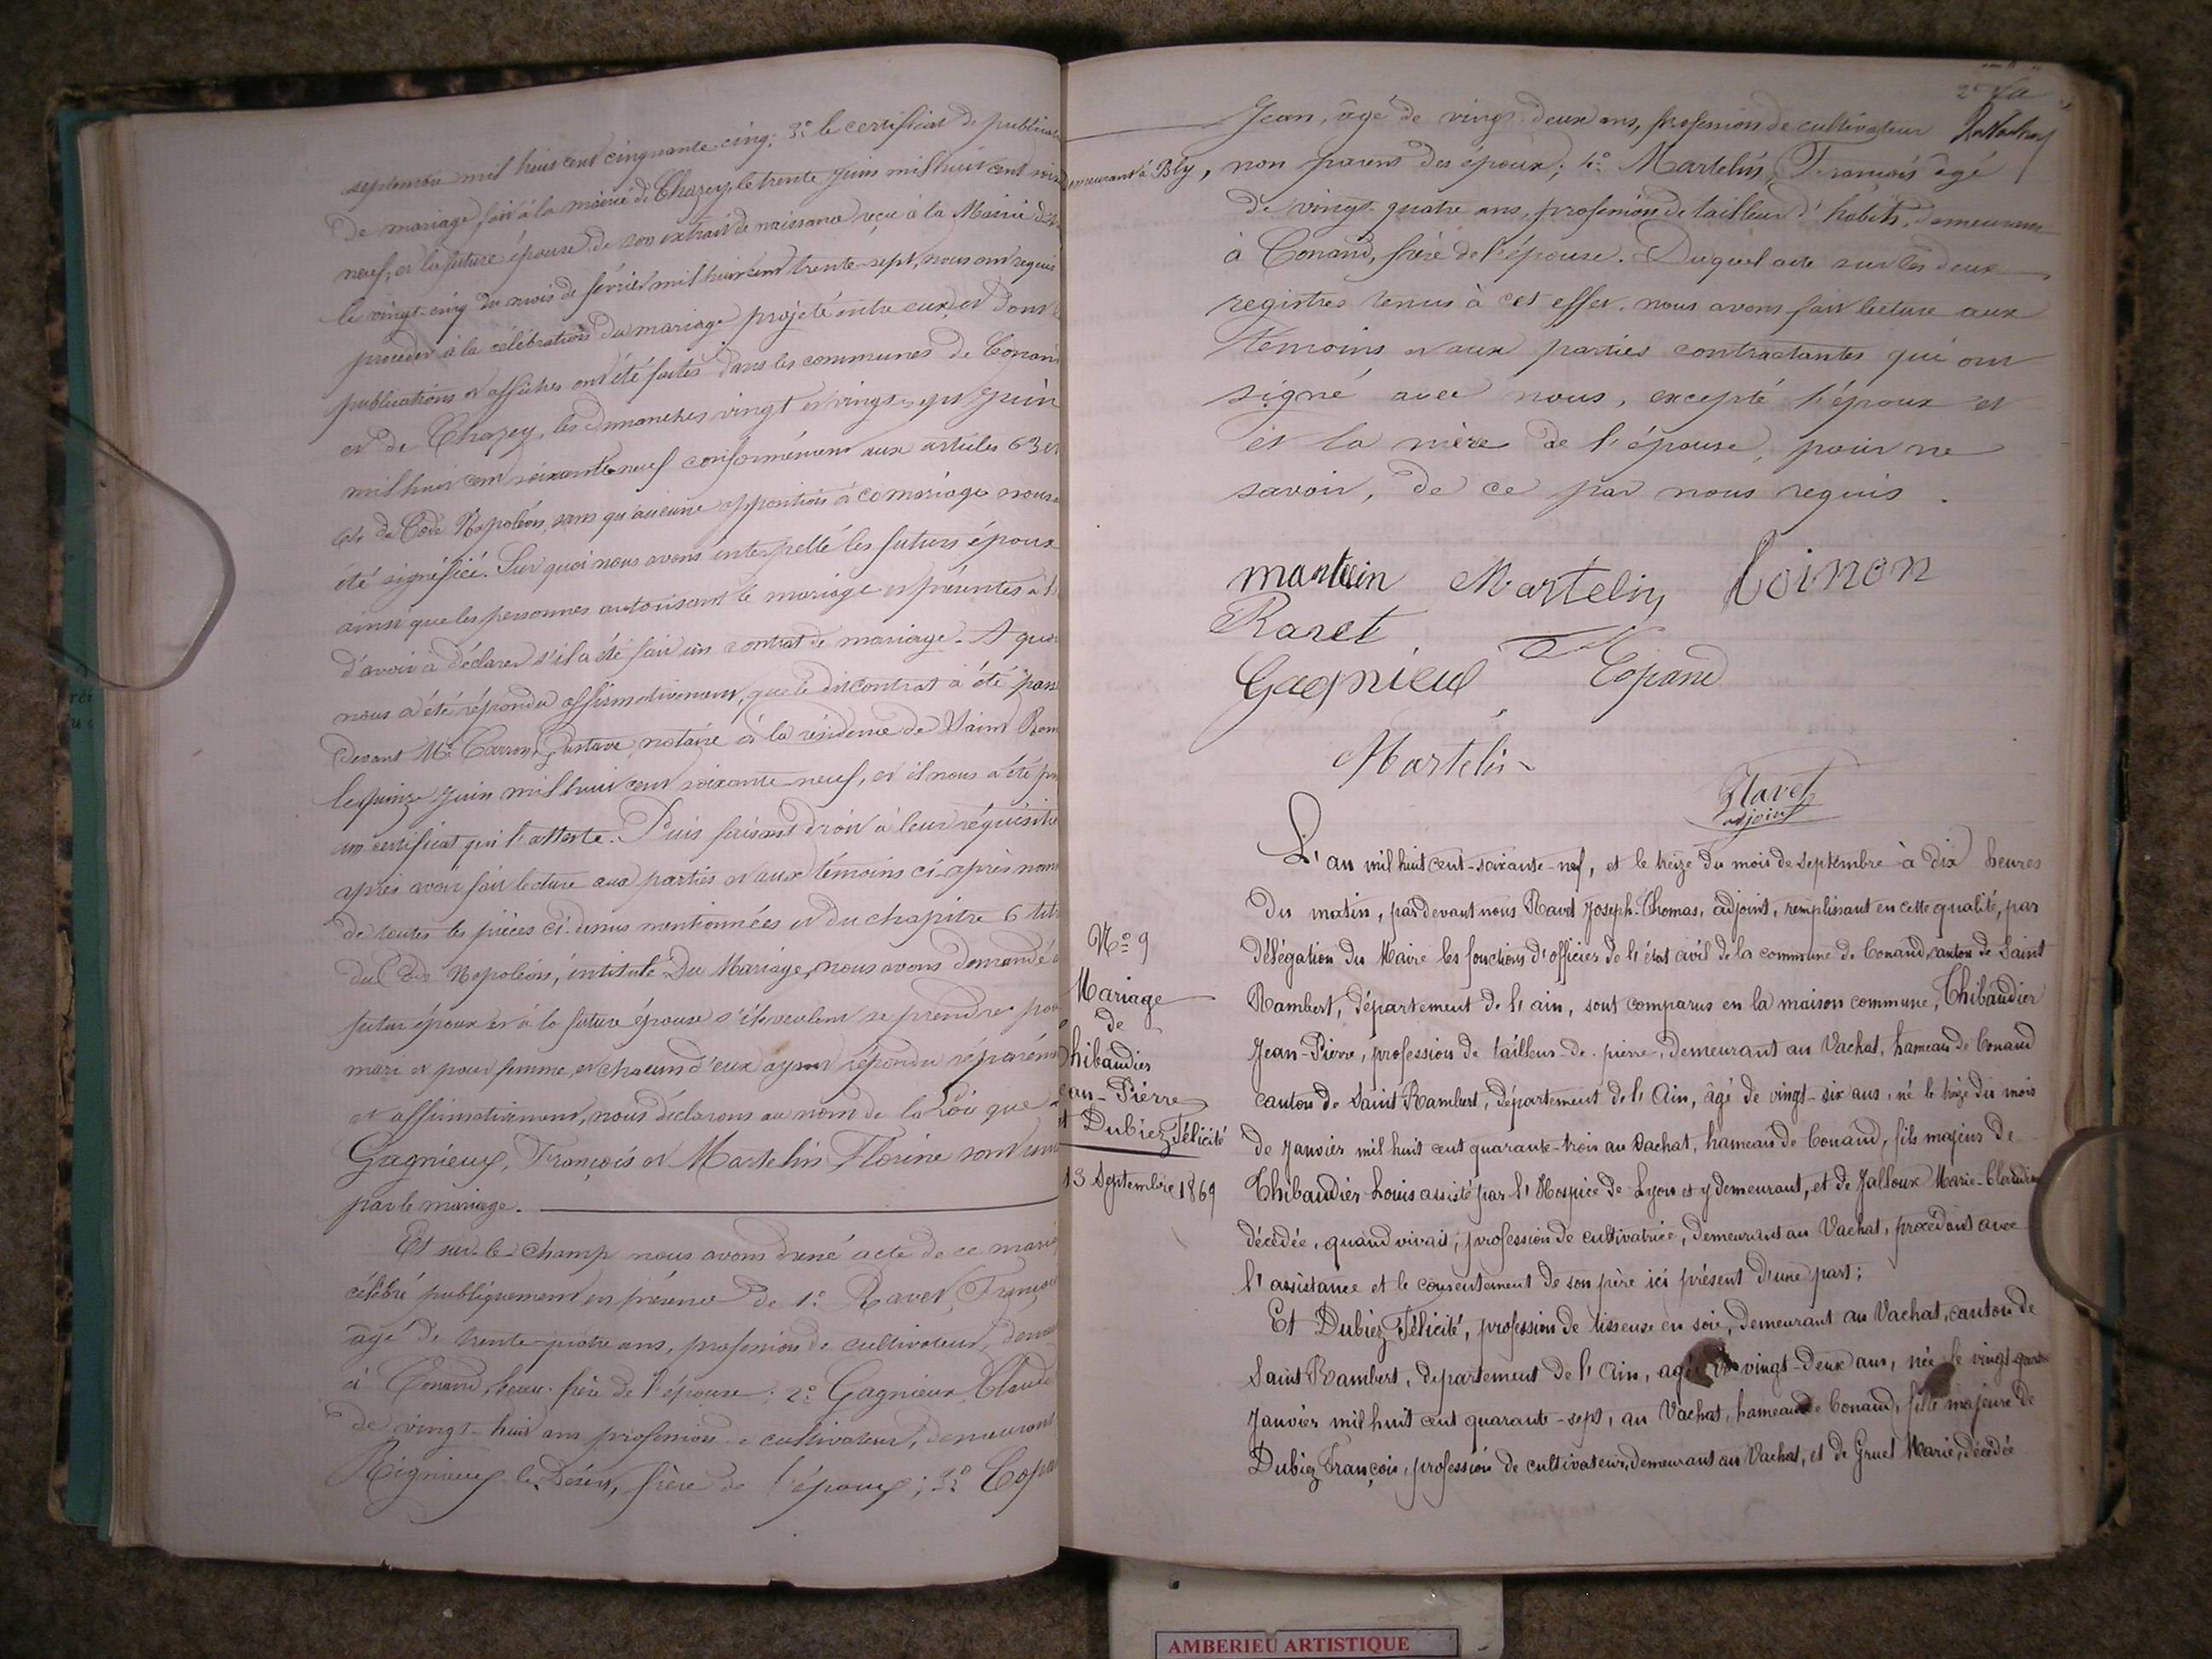 septembre mil huit cent cinquante cinq; 3º le certificat de publication
de mariage fait à la mairie de Chazey, le trente Juin mil huit cent soix
neuf; et la future épouse de son extrait de naissance reçu à la Mairie
le vingt-cinq du mois de février mil huit cent trente-sept, nous ont requis
procéder à la célébration du mariage projeté entre eux, et dont
publications et affiches ont été faites dans les communes de Conand
et de Chazey, les dimanches vingt et vingt-sept Juin
mil huit cent soixante-neuf conformément aux articles 63 et
64 du Code Napoléon, sans qu'aucune opposition à ce mariage nous
été signifiée. Sur quoi nous avons interpellé les futurs époux
ainsi que les personnes autorisant le mariage et présentes à l'
d'avoir à déclarer s'il a été fait un contrat de mariage. A quoi
nous a été répondu affirmativement, que le dit contrat a été passé
devant Me Carron, Gustave, notaire à la résidence de Saint Ram
le quinze Juin mil huit cent soixante-neuf, et il nous a été
un certificat qui l'atteste. Puis faisant droit à leur réquisition
après avoir fait lecture aux parties et aux témoins ci-après nom
de toutes les pièces ci-dessus mentionnées et du chapitre 6 titr
du Code Napoléon, intitulé Du Mariage, nous avons demandé
futur époux et à la future épouse s'ils veulent se prendre pour
mari et pour femme, et chacun d'eux ayant répondu séparément
et affirmativement, nous déclarons au nom de la Loi que
Gagnieux, François et Martelin Florine sont unis
par le mariage.
Et sur-le-champ nous avons dressé acte de ce mariage
célébré publiquement en présence de 1º Ravet, François
âgé de trente-quatre ans, profession de cultivateur, dem
à Conand, beau-frère de l'épouse; 2º Gagnieux, Claude
de vingt-huit ans profession de cultivateur, demeurant
Rignieux-le-Désert, frère de l'époux; 3º Copa
2e
Jean, âgé de vingt-deux ans, profession de cultivateur
demeurant à Bly, non parent des époux; 4º Martelin, François âgé
de vingt-quatre ans, profession de tailleur d'habits, demeurant
à Conand, frère de l'épouse. Duquel acte sur les deux
registres tenus à cet effet, nous avons fait lecture aux
témoins et aux parties contractantes qui ont
signé avec nous, excepté l'époux et
et la mère de l'épouse, pour ne
savoir, de ce par nous requis.
Martelin Loinon
Ravet
Gagnieux Copand
Martelin
Ravet
adjoint
Nº 9
Mariage
de
Thibaudier
Jean-Pierre
et Dubiez Félicité
13 Septembre 1869
L'an mil huit cent-soixante-neuf, et le treize du mois de septembre à dix heures
du matin, par devant nous Ravet Joseph-Thomas, adjoint, remplissant en cette qualité, par
délégation du Maire les fonctions d'officier de l'état civil de la commune de Conand, canton de Saint
Rambert, département de l'ain, sont comparus en la maison commune, Thibaudier
Jean-Pierre, profession de tailleur-de-pierre, demeurant au Vachat, hameau de Conand
canton de Saint Rambert, département de l'Ain, âgé de vingt-six ans, né le treize du mois
de Janvier mil huit cent quarante-trois au Vachat, hameau de Conand, fils majeur de
Thibaudier Louis assisté par l'Hospice de Lyon et y demeurant, et de Jalloux Marie-Claudine
décédée, quand vivait, profession de cultivatrice, demeurant au Vachat, procédant avec
l'assistance et le consentement de son père ici présent d'une part;
Et Dubiez Félicité, profession de tisseuse en soie, demeurant au Vachat, canton de
Saint Rambert, département de l'Ain, agée de vingt-deux ans, née le vingt-quatre
Janvier mil huit cent quarante-sept, au Vachat, hameau de Conand, fille majeure de
Dubiez François, profession de cultivateur, demeurant au Vachat, et de Gruel Marie, décédée
AMBERIEU ARTISTIQUE